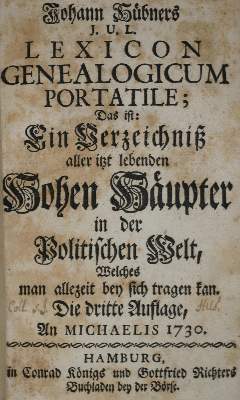 Johann Hübners
J. U. L.
LEXICON
GENEALOGICUM
PORTATILE;
Das ist:
Ein Verzeichniß
aller itzt lebenden
Hohen Häupter
in der
Politischen Welt,
Welches
man allezeit bey sich tragen kan.
Die dritte Auflage,
An MICHAELIS 1730.
HAMBURG,
in Conrad Königs und Gottfried Richters
Buchladen bey der Börse.